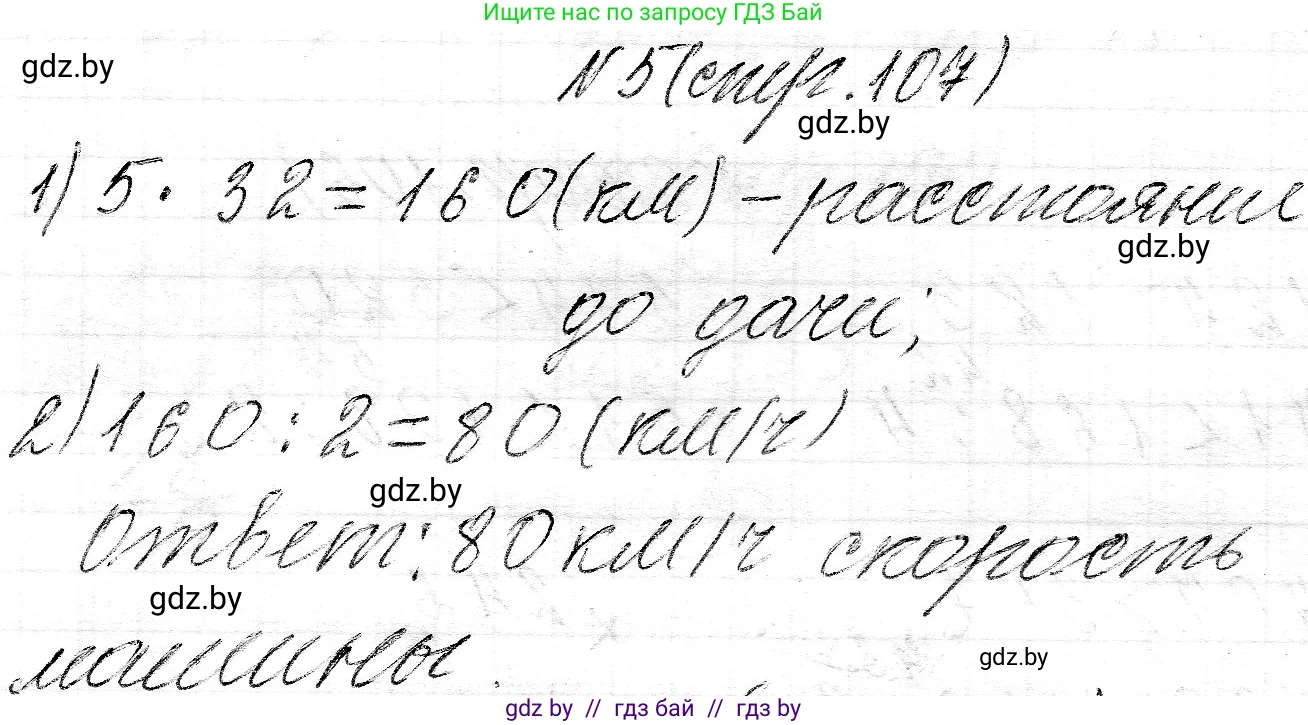 Ищите нас по запросу ГДЗ Бай
gdz.by
N 5 (стр. 107)
gdz.by
1) 5 · 32 = 160 (км) - расстояние
gdz.by
до дачи;
2) 160 : 2 = 80 (км/ч)
gdz.by
Ответ: 80 км/ч скорость
gdz.by
машины.
gdz.by
gdz by // гдз бай // гдз by